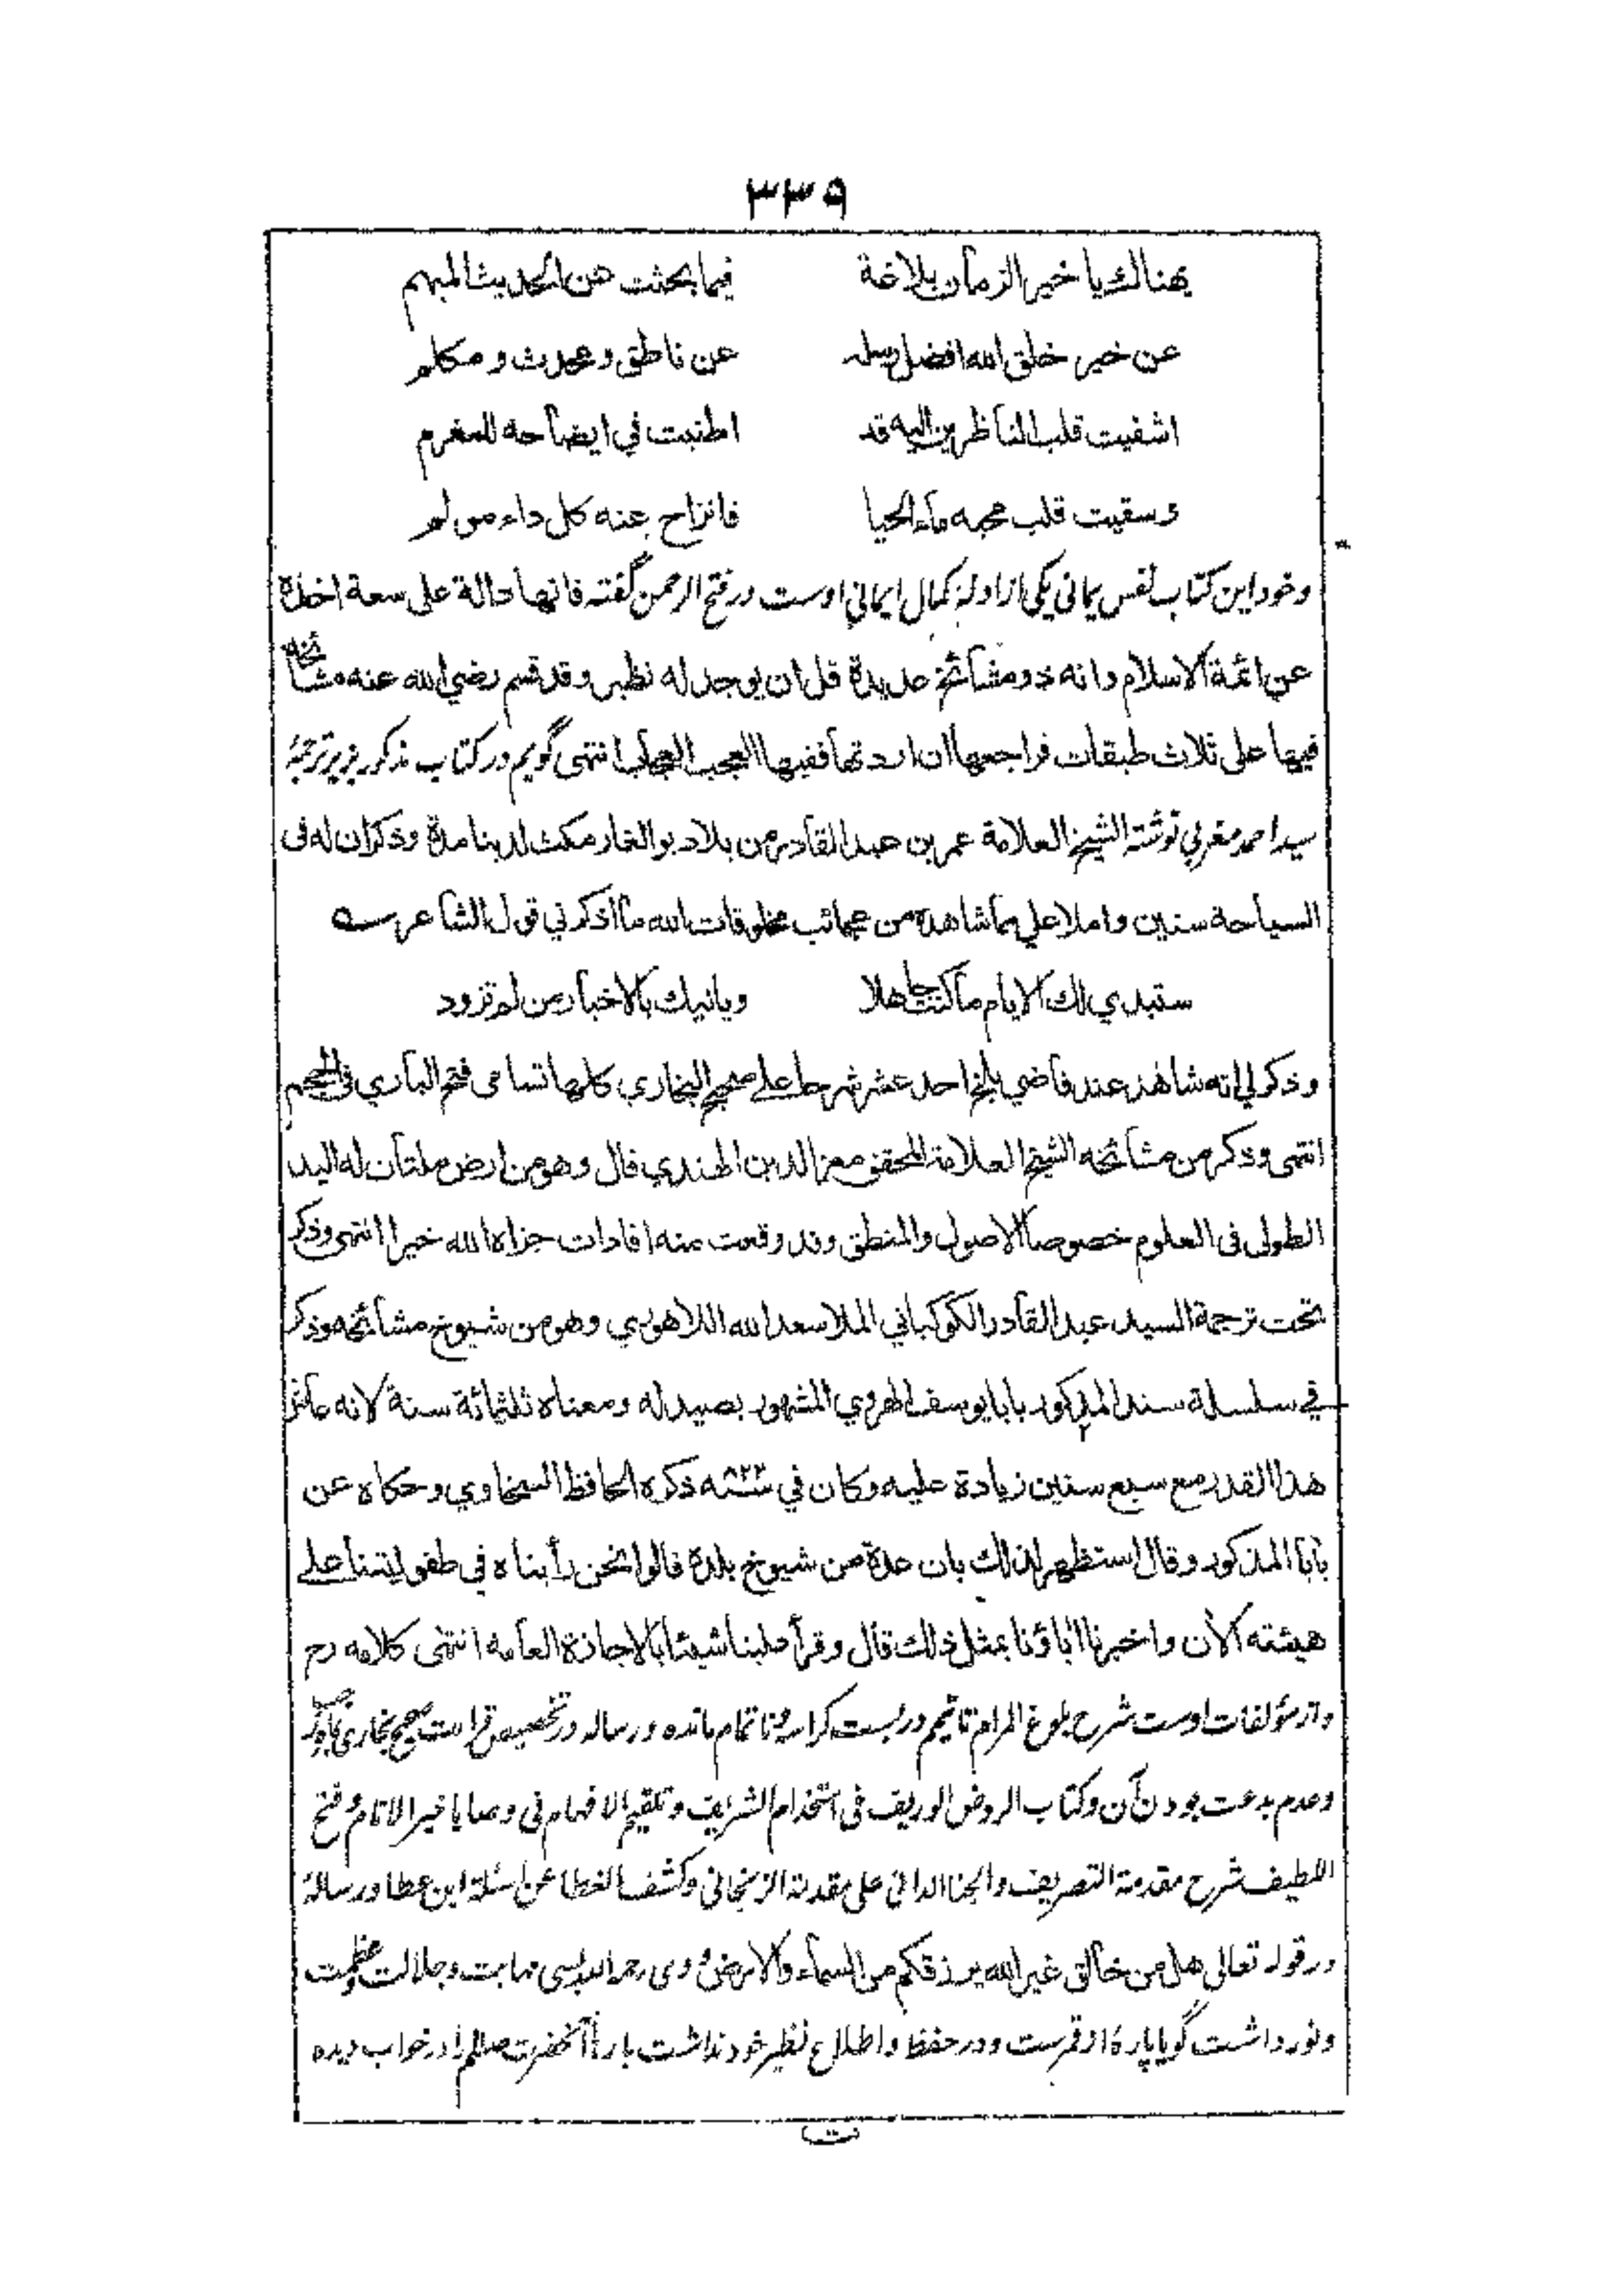 ٣٣٩
يهنا لك يا خير الزمان بلاغة فيما بحثت عن الحديث المبهم
عن خير خلق الله افضل رسله عن ناطق ومحدث ومكلم
اشفيت قلب الناظرين اليه قد اطنبت في ايضاحه للمغرم
وسقيت قلب محبه ماء الحيا فانزاح عنه كل داء مولم
وخود اين كتاب نفس يمانى يكى از ادلهٔ كمال ايمانى اوست در فتح الرحمن گفته فانها دالة على سعة اخذه
عن ائمة الاسلام وانه ذو مشائخ عديدة قل ان يوجد له نظير وقد قسم رضي الله عنه مشائخه
فيها على ثلاث طبقات فراجعها ان اردتها ففيها العجب العجاب انتهى گويم در كتاب مذكور زير ترجمهٔ
سيد احمد مغربي نوشته الشيخ العلامة عمر بن عبد القادر من بلاد بو الغار مكث لدينا مدة وذكر ان له فى
السياحة سنين واملا علي مما شاهده من عجائب مخلوقات الله ما اذكرني قول الشاعر ــه
ستبدي لك الايام ما كنت جاهلا وياتيك بالاخبار من لم تزود
وذكر لي انه شاهد عند قاضي بلخ احد عشر شرحا على صحيح البخاري كلها تسامى فتح الباري فى الحجم
انتهى وذكر من مشائخه الشيخ العلامة المحقق معز الدين الهندي قال وهو من ارض ملتان له اليد
الطولى فى العلوم خصوصا الاصول والمنطق وقد وقعت منه افادات جزاه الله خيرا انتهى وذكر
تحت ترجمة السيد عبد القادر الكوكباني الملا سعد الله اللاهوري وهو من شيوخ مشائخه وذكر
في سلسلة سند المذكور بابا يوسف الهروي المشهور بصيد له ومعناه ثلثمائة سنة لانه عاش
هذا القدر مع سبع سنين زيادة عليه وكان في سنة ٨٢٢ ذكره الحافظ السخاوي وحكاه عن
بابا المذكور وقال استظهر لذلك بان عدة من شيوخ بلده قالوا نحن رأيناه في طفوليتنا على
هيئته الآن واخبرنا اباؤنا بمثل ذلك قال وقرأ علينا شيئا بالاجازة العامه انتهى كلامه رح
واز مؤلفات اوست شرح بلوغ المرام تا تيمم در بست كراسه ناتمام مانده ورساله در تخصيص قراءت صحيح بخارى
وعدم بدعت بودن آن وكتاب الروض الوريف فى استخدام الشريف وتلقيح الافهام فى وصايا خير الانام وفتح
اللطيف شرح مقدمة التصريف والجنا الدانى على مقدمة الزنجانى وكشف الغطا عن اسئلة ابن عطا ورسالهٔ
در قوله تعالى هل من خالق غير الله يرزقكم من السماء والارض ووى رحمه الله بسى مهابت وجلالت وعظمت
ونور داشت گويا پارهٔ از قمرست ودر حفظ واطلاع نظير خود نداشت بارها آنحضرت صللم را در خواب ديده
ت